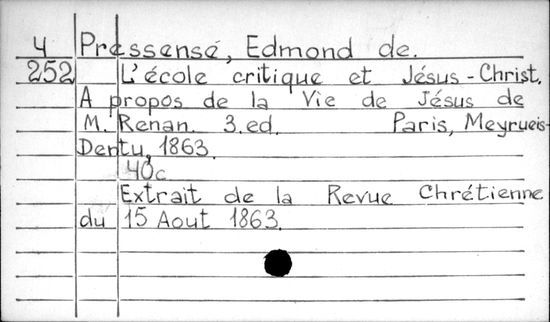 4 Pressensé, Edmond de.
252 L'école critique et Jésus-Christ.
A propos de la Vie de Jésus de
M. Renan. 3.ed. Paris, Meyrueis-
Dentu, 1863.
40c
Extrait de la Revue Chrétienne
du 15 Aout 1863.